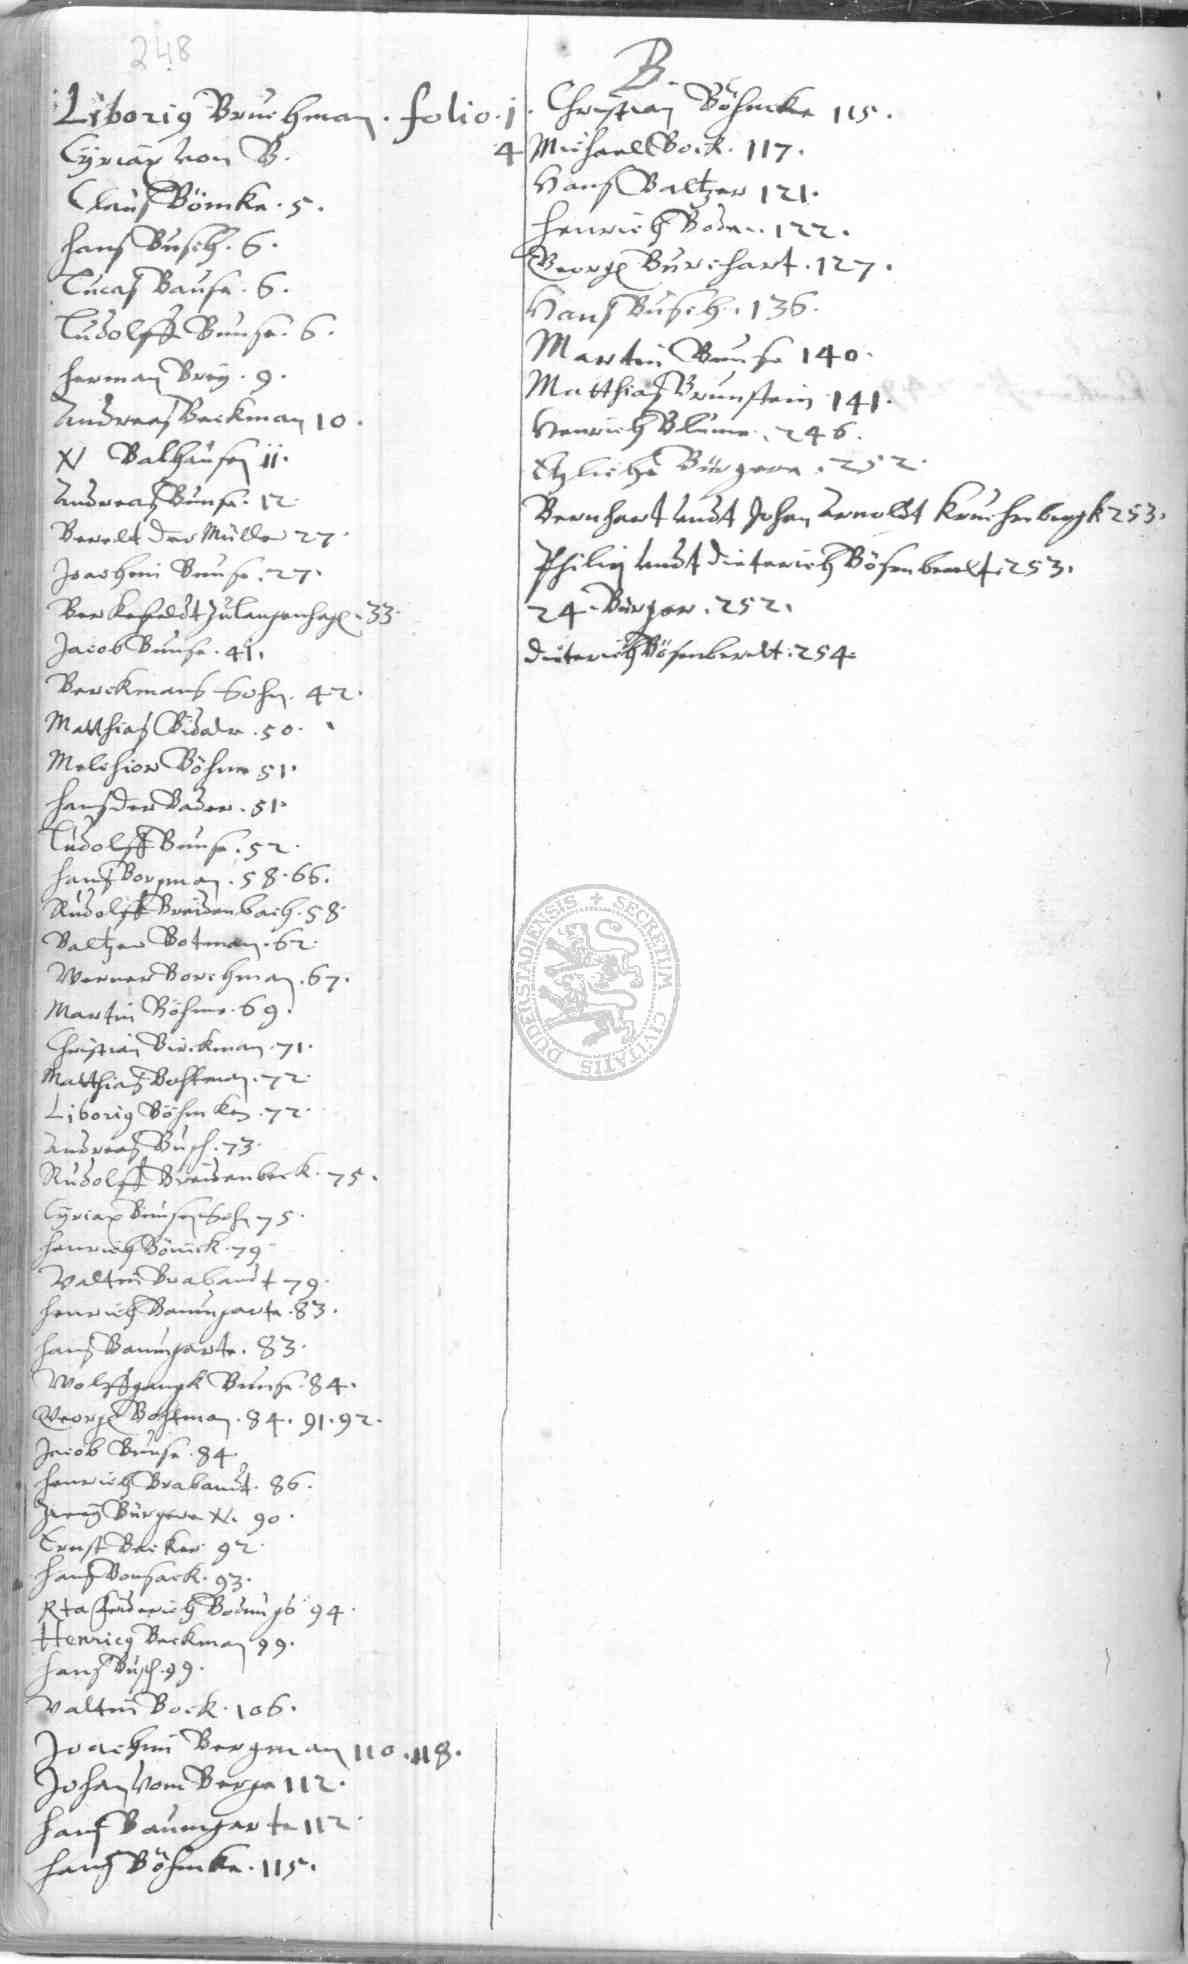 248
B.
Liborig Bruchman. folio. 1.
Cyriax von B. 4
Claus Bömke. 5.
Hans Busch. 6.
Lucas Bause. 6.
Ludolff Bunse. 6.
Herman Brey. 9.
Andreas Backman 10.
N Balhausen 11.
Andreas Bunse. 12.
Bereldt der Müller 27.
Joachim Bunse. 27.
Berkefeldt zu Langenhagen. 33.
Jacob Bunse. 41.
Berckmans Sohn. 42.
Matthias Bader. 50.
Melchior Böhme 51.
Hans der Bader. 51.
Ludolff Bunse. 52.
Hans Borgman. 58. 66.
Rudolff Breidenbach. 58.
Baltzer Botman. 62.
Werner Borchman. 67.
Martin Böhme. 69.
Christian Birckman. 71.
Matthias Bohtman. 72.
Liborig Böhmken. 72.
Andreas Busch. 73.
Rudolff Breidenbeck. 75.
Cyriax Bunsen Sohn 75.
Henrich Bönick. 79.
Valtin Brabandt 79.
Henrich Baumgarte. 83.
Hans Baumgarte. 83.
Wolffgangk Bunse. 84.
Georg Bohtman. 84. 91. 92.
Jacob Bunse. 84.
Henrich Brabandt. 86.
Bürgere N. 90.
Ernst Becker 92.
Hans Bonsack. 93.
Friderich Bodungs 94.
Henricg Beckman 99.
Hans Busch. 99.
Valtin Bock. 106.
Joachim Bergman 110. 118.
Johan vom Berge 112.
Hans Baumgarte 112.
Hans Böhmke. 115.
Christian Böhmke 115.
Michaell Bock. 117.
Hans Baltzer 121.
Henrich Boden. 122.
Georg Burchart. 127.
Hans Busch. 136.
Martin Bunse 140.
Matthias Brunstein 141.
Henrich Blume. 246.
Etzliche Bürgere. 252.
Bernhart undt Johan Arnoldt Kruchenbergk 253.
Philip undt Dieterich Bösenberelt. 253.
24. Bürger. 252.
Dieterich Bösenberelt. 254.
SECRETUM CIVITATIS DUDERSTADIENSIS